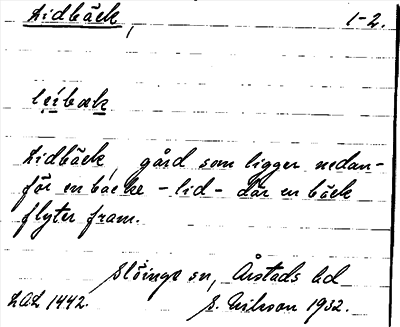 Lidbäck, 1-2.
leíbæk
Lidbäck, gård som ligger nedan-
för en backe - lid - där en bäck
flyter fram.
Slöinge sn, Årstads hd
LAL 1442. S. Nilsson 1932.